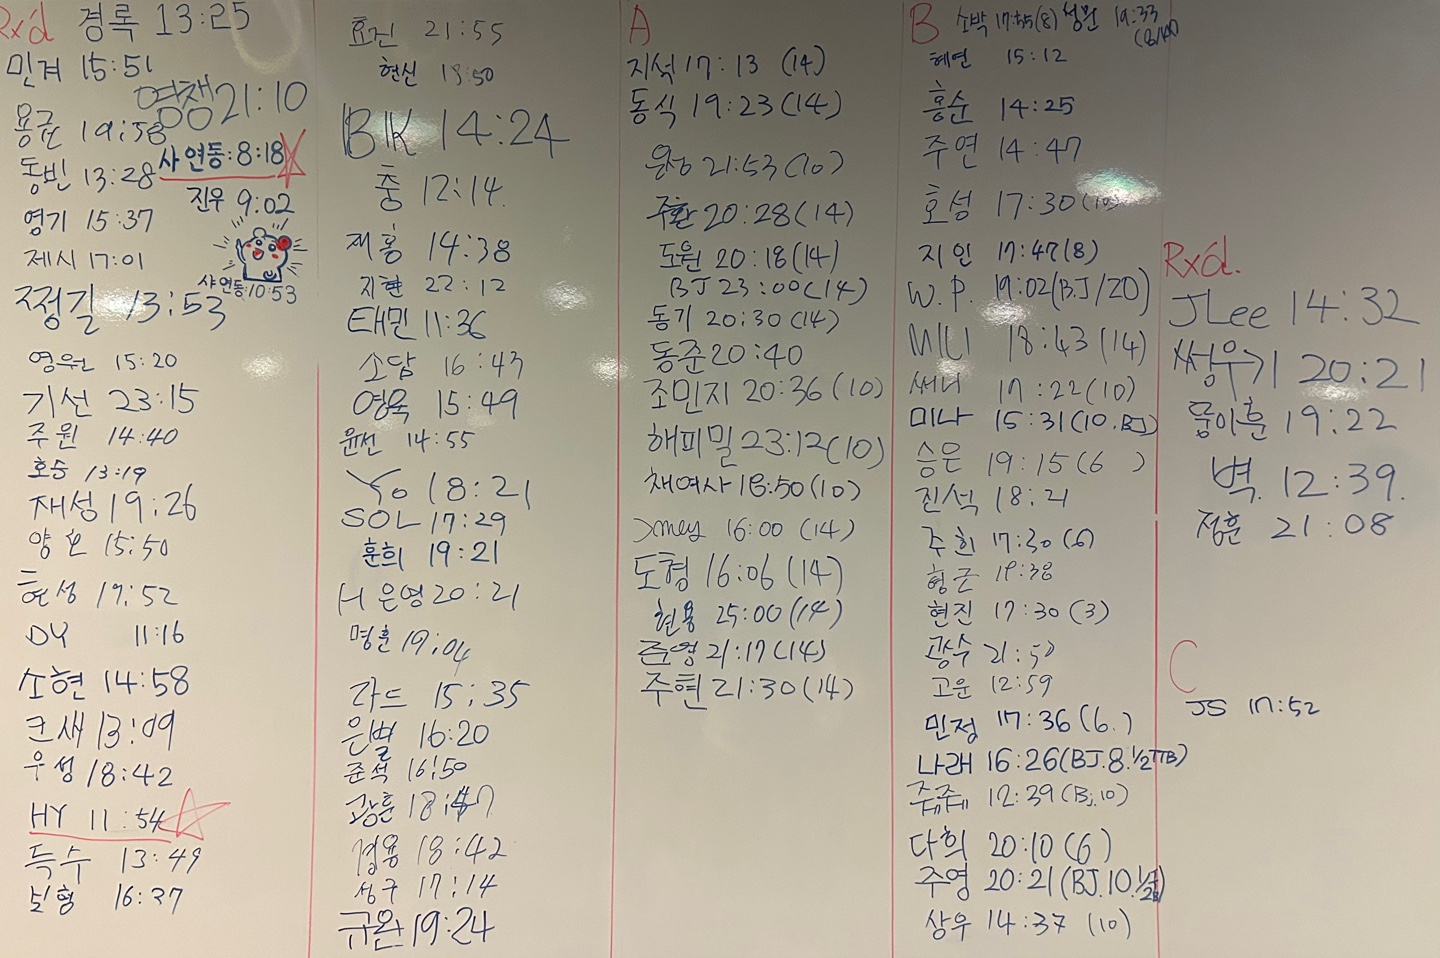 Rx'd 경록 13:25
민겨 15:51
영재 21:10
용균 19:58
사연동:8:18
동빈 13:28
진우 9:02
영기 15:37
제시 17:01
샤연동:10:53
쩡길 13:53
영원 15:20
기선 23:15
주원 14:40
호승 13:19
재성 19:26
양 15:50
헌성 19:52
DY 11:16
소현 14:58
크새 13:09
우성 18:42
HY 11:54
득수 13:49
보형 16:37
효진 21:55
현신 18:50
BK 14:24
충 12:14
제홍 14:38
지현 22:12
태민 11:36
소답 16:43
영욱 15:49
윤선 14:55
Yo 18:21
SOL 17:29
훈희 19:21
H 은영 20:21
명훈 19:04
라드 15:35
은별 16:20
준석 16:50
광훈
경용 18:42
성구 17:14
규완 19:24
A
지석 17:13 (14)
동식 19:23 (14)
은정 21:53 (10)
주환 20:28 (14)
도원 20:18 (14)
BJ 23:00 (14)
동기 20:30 (14)
동준 20:40
조민지 20:36 (10)
해피밀 23:12 (10)
채여사 18:50 (10)
16:00 (14)
도형 16:06 (14)
현용 25:00 (14)
준영 21:17 (14)
주현 21:30 (14)
B 소박 17:55(8) 성민 19:33
혜연 15:12
홍순 14:25
주연 14:47
호성 17:30 (10)
지인 17:47(8)
W.P. 19:02(BJ/20)
MILI 18:43 (14)
써니 17:22 (10)
미나 15:31 (10.BJ)
승은 19:15 (6 )
진석 18:21
주희 17:30 (6)
형근 19:38
현진 17:30 (3)
광수 21:50
고운 12:59
민정 17:36 (6.)
나래 16:26 (BJ.8.1/2TTB)
쥬쥬 12:39 (BJ.10)
다희 20:10 (6)
주영 20:21 (BJ.10.
상우 14:37 (10)
Rx'd.
JLee 14:32
쌍우기 20:21
뭉아훈 19:22
벽. 12:39.
정훈 21:08
C
JS 17:52